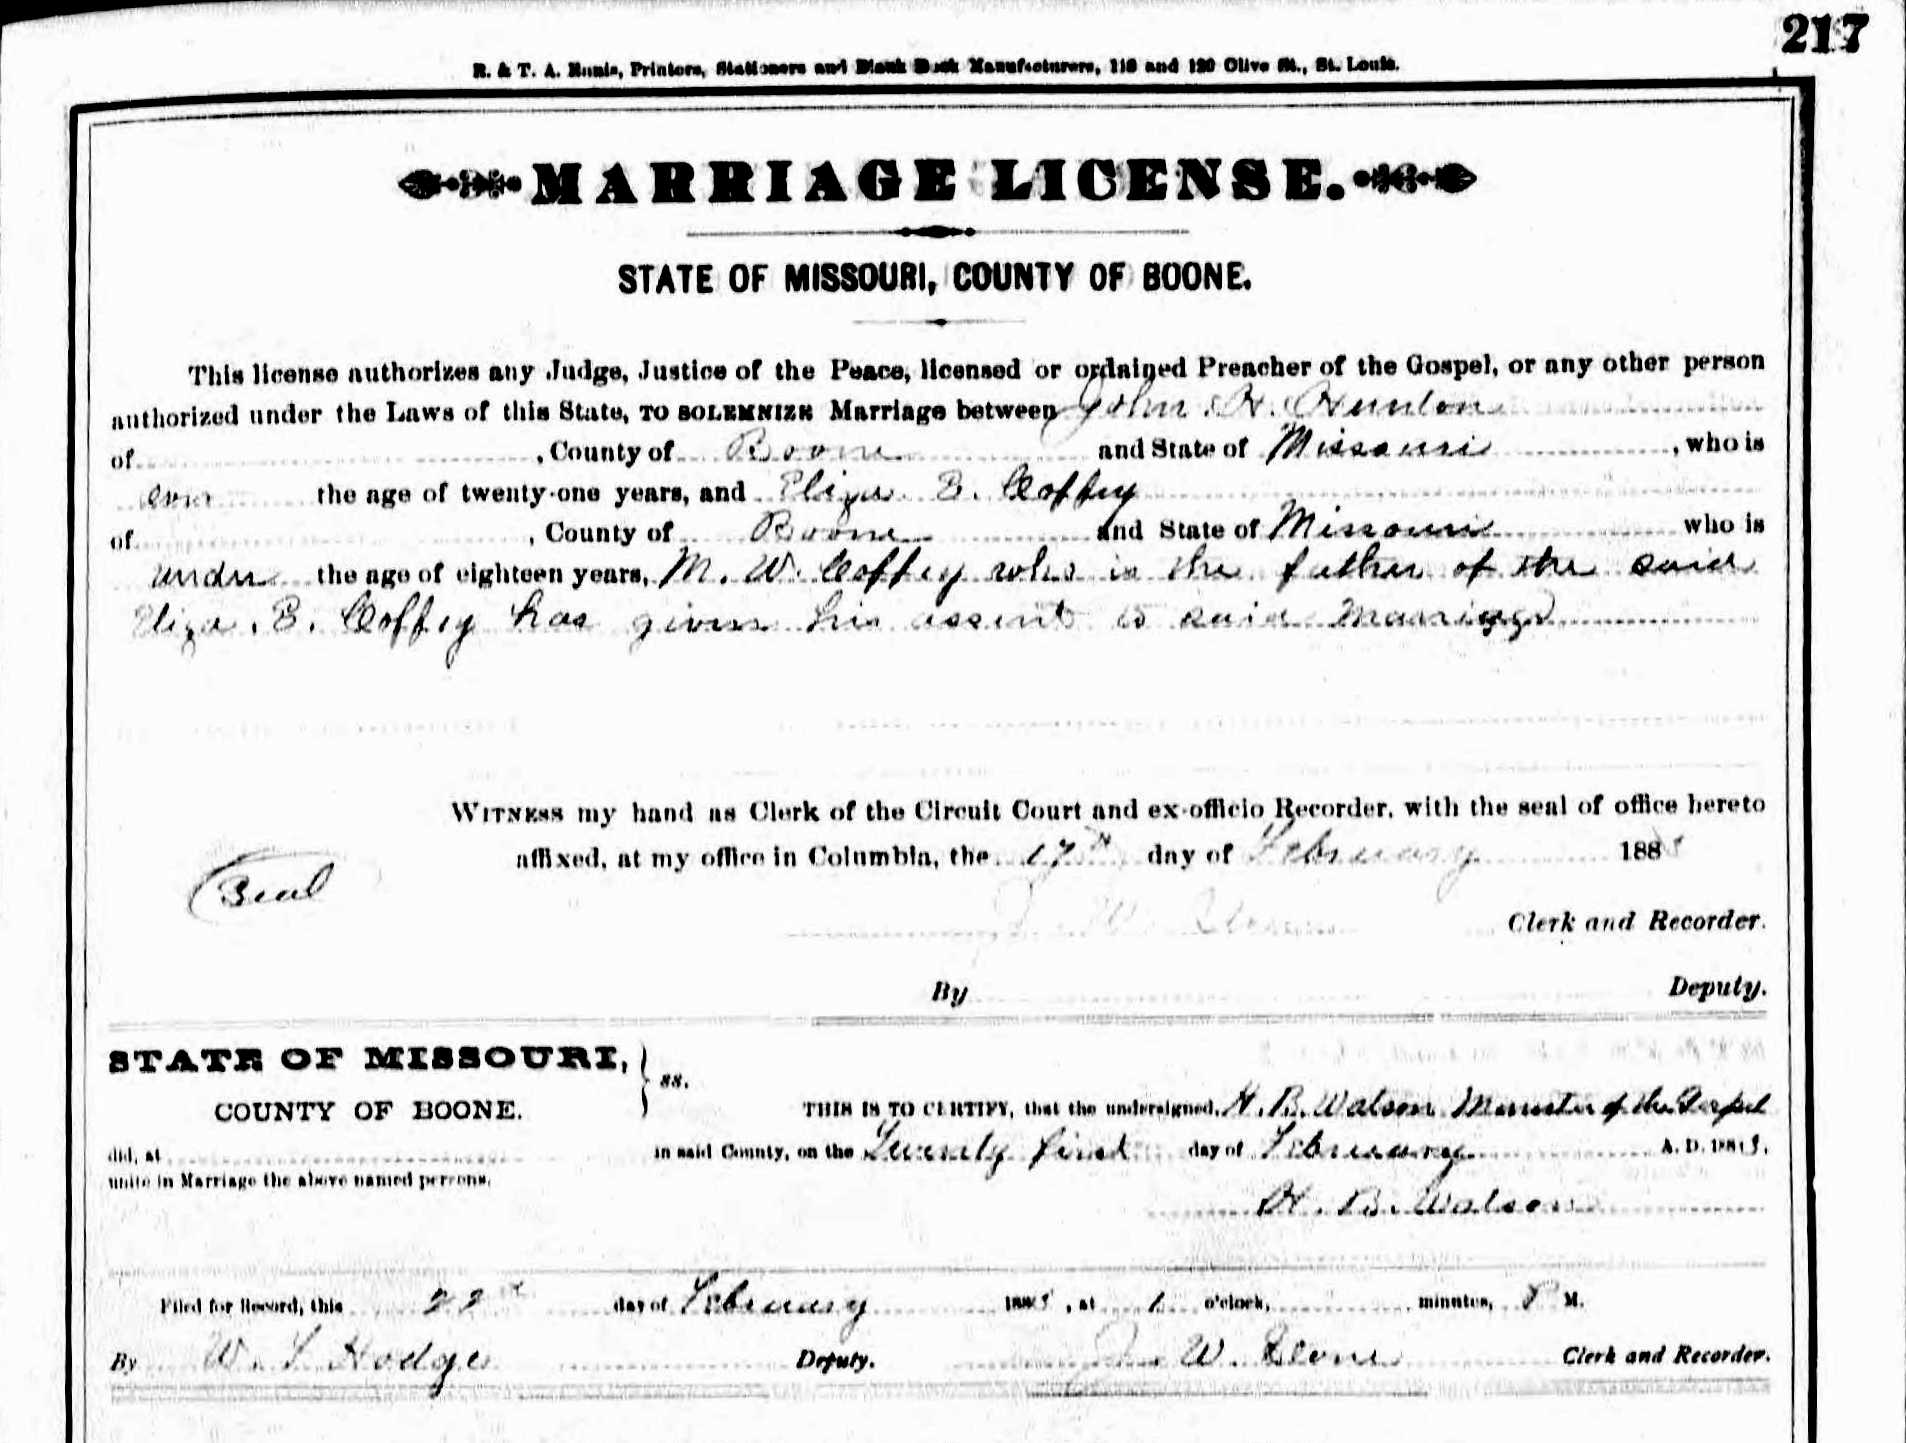 217
R. & T. A. Ennis, Printers, Stationers and Blank Book Manufacturers, 118 and 120 Olive St., St. Louis.
MARRIAGE LICENSE.
STATE OF MISSOURI, COUNTY OF BOONE.
This license authorizes any Judge, Justice of the Peace, licensed or ordained Preacher of the Gospel, or any other person
authorized under the Laws of this State, TO SOLEMNIZE Marriage between John H. Hunton
of , County of Boone and State of Missouri , who is
over the age of twenty-one years, and Eliza E. Coffey
of , County of Boone and State of Missouri who is
under the age of eighteen years, M. W. Coffey who is the father of the said
Eliza. E. Coffey has given his assent to said marriage
WITNESS my hand as Clerk of the Circuit Court and ex-officio Recorder, with the seal of office hereto
affixed, at my office in Columbia, the 17th day of February 188
Seal
W. Clerk and Recorder.
By Deputy.
STATE OF MISSOURI, } ss.
COUNTY OF BOONE.
THIS IS TO CERTIFY, that the undersigned, H. B. Watson Minister of the Gospel
did, at in said County, on the Twenty first day of February A. D. 188
unite in Marriage the above named persons.
H. B. Watson
Filed for Record, this 22d day of February 188 , at 1 o'clock, minutes, P M.
By W. S. Hodge Deputy. W. Clerk and Recorder.